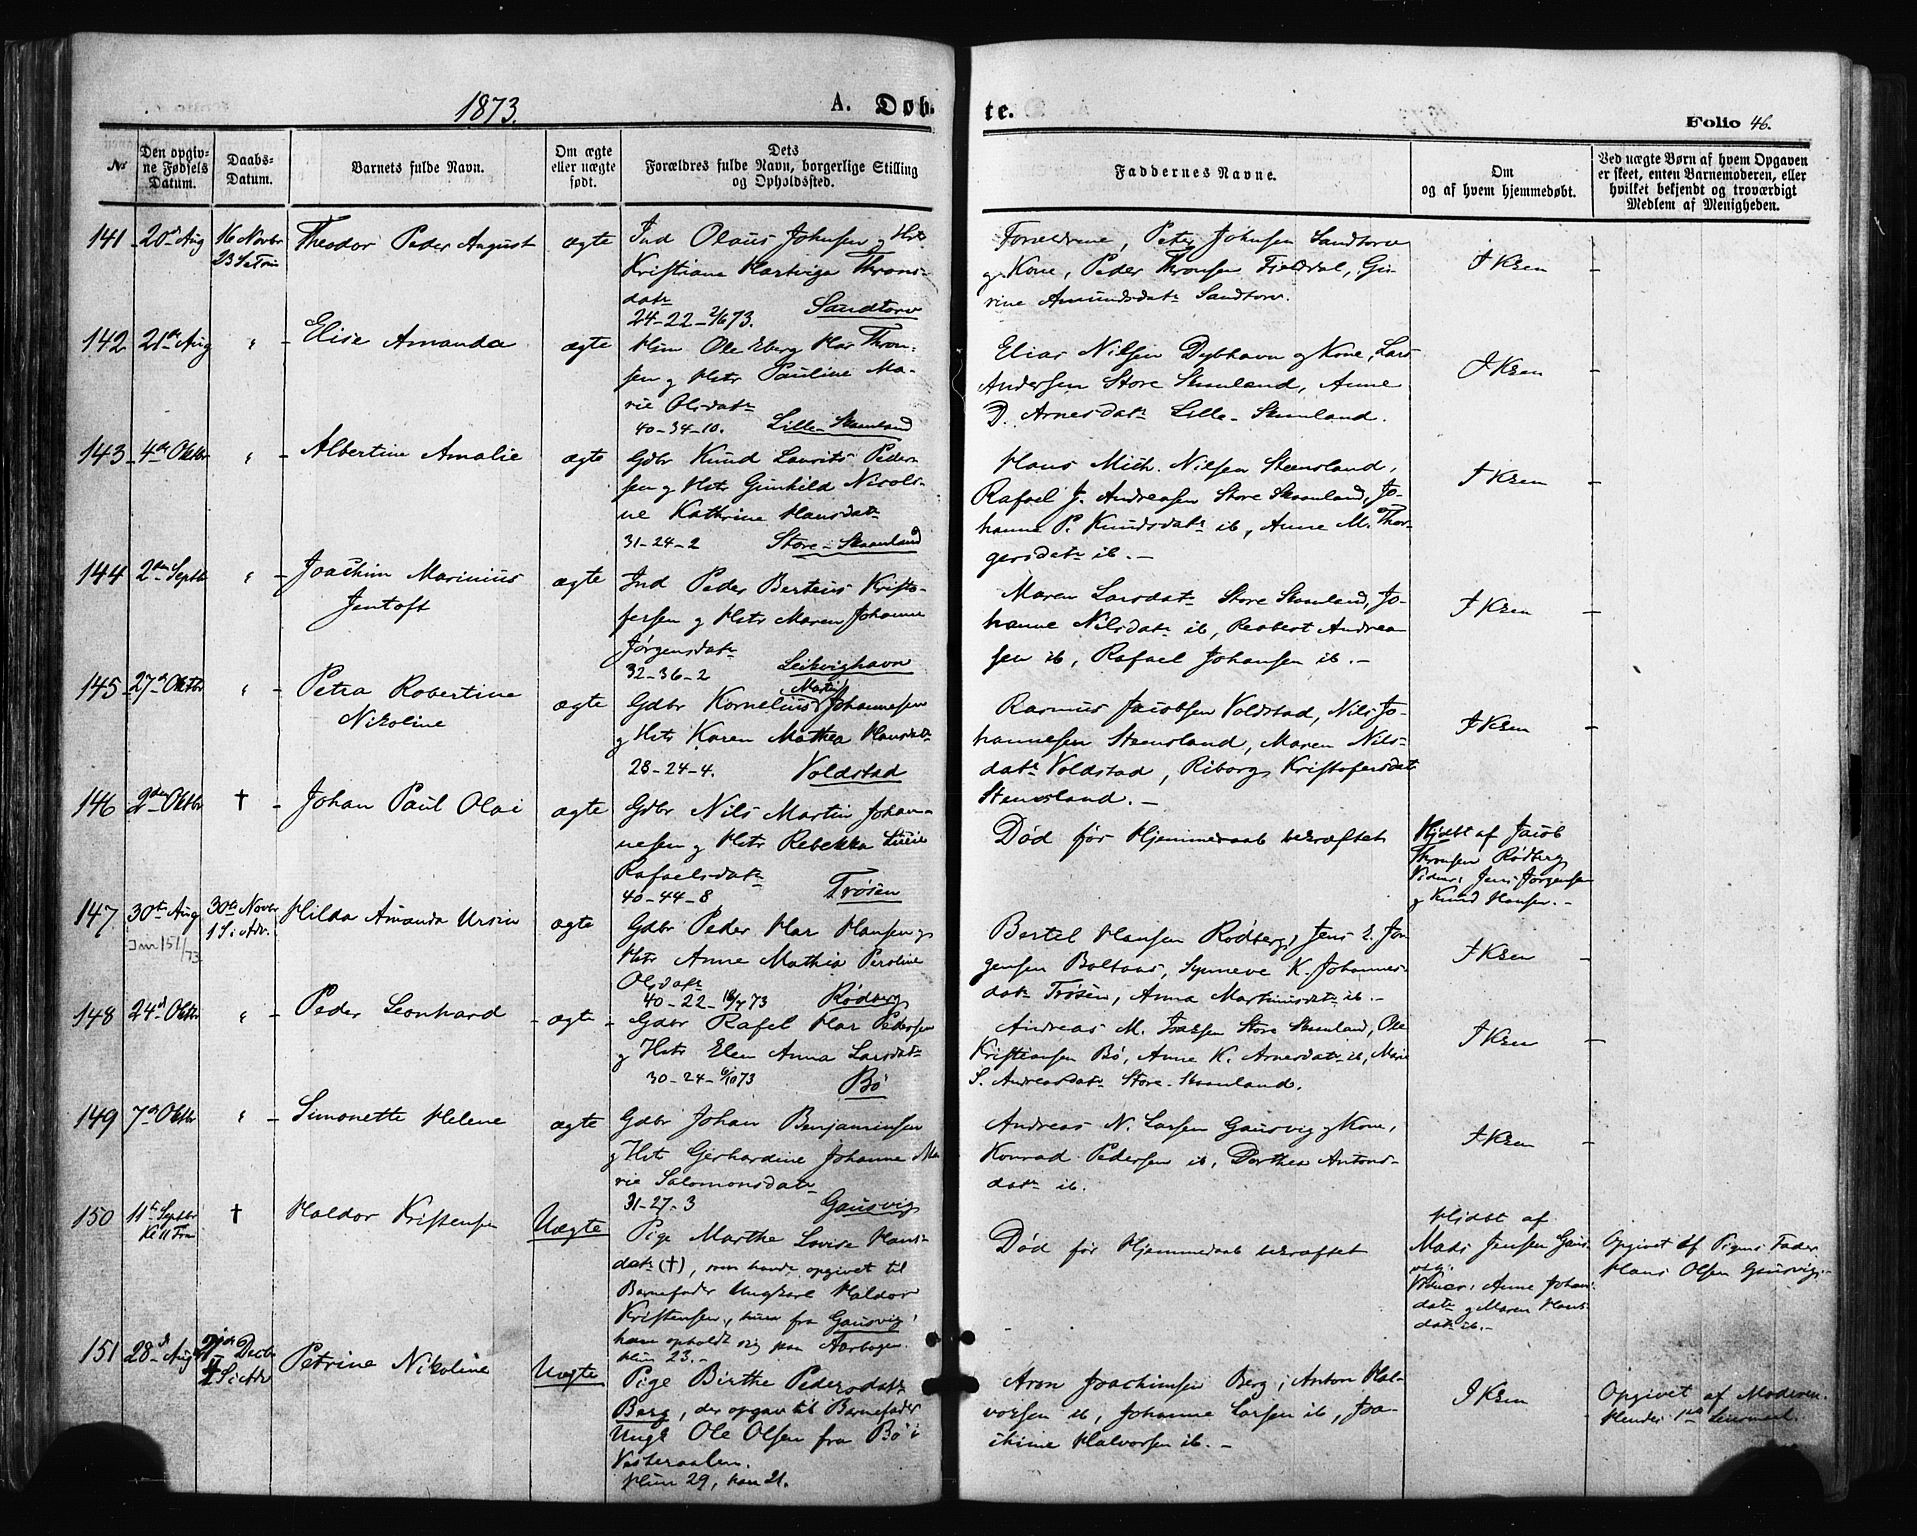 1873.
A. Døb-
te.
Folio 46.
No
Den opgiv-
ne Fødsels
Datum.
Daabs-
Datum.
Barnets fulde Navn.
Om ægte
eller uægte
født.
Dets
Forældres fulde Navn, borgerlige Stilling
og Opholdsted.
Faddernes Navne.
Om
og af hvem hjemmedøbt.
Ved uægte Børn af hvem Opgaven
er skeet, enten Barnemoderen, eller
hvilket bekjendt og troværdigt
Medlem af Menigheden.
141 20de Aug 16 Novbr
Theodor Peder August
ægte
Ind Olaus Johnsen og Hstr
Kristiane Hartvige Throns-
datr
24-22-2/6 73. Sandtorv
Forældrene, Peter Johnsen Sandtorv
og Kone, Peder Thronsen Fjeldal, Gu-
rine Amundsdatr Sandtorv.
I Kken
142 21de Aug
Elise Amanda
ægte
Hm Ole Eberg Har Thron-
sen og Hstr Pauline Ma-
rie Olsdatr
40-34-10. Lille-Skaanland
Elias Nilsen Dybhavn og Kone, Lars
Andersen Store Skaanland, Anne
D. Arnesdatr Lille-Skaanland.
I Kken
143 4de Oktbr
Albertine Amalie
ægte
Gdbr Knud Laurits Peder-
sen og Hstr Gunhild Nicoli-
ne Kathrine Hansdatr
31-24-2 Store-Skaanland
Hans Mich. Nilsen Steensland,
Rafael J. Andreasen Store Skaanland, Jo-
hanne P. Knudsdatr ib, Anne M. Thor-
gersdatr ib.-
I Kken
144 2den Septbr
Joachim Marinius
Jentoft
ægte
Ind Peder Berteus Kristo-
fersen og Hstr Maren Johanne
Jørgensdatr
32-36-2 Leikvighavn
Maren Larsdatr Store Skaanland, Jo-
hanne Nilsdatr ib, Robert Andrea-
sen ib, Rafael Johansen ib.-
I Kken
145 27de Oktbr
Petra Robertine
Nikoline
ægte
Martin
Gdbr Kornelius Johannesen
og Hstr Karen Mathea Hansdatr
28-24-4. Voldstad
Rasmus Jacobsen Voldstad, Nils Jo-
hannesen Steensland, Maren Nils-
datr Voldstad, Riborg Kristofersdatr
Steensland.-
I Kken
146 2den Oktbr †
Johan Paul Olai
ægte
Gdbr Nils Martin Johan-
nesen og Hstr Rebekka Lucie
Rafaelsdatr
40-44-8 Trøsen
Død før Hjemmedaab bekræftet
Hjdbt af Jacob
Thronsen Rødberg
Vidner: Jens Jørgensen
og Knud Hansen.-
147 30te Aug 30te Novbr
1 S. i Adv.
Hilda Amanda Ursin
ægte
Gdbr Peder Har Hansen og
Hstr Anne Mathia Peroline
Olsdatr
40-22-18/7 73 Rødberg
Bertel Hansen Rødberg, Jens E. Jør-
gensen Boltaas, Synneve K. Johannes-
datr Trøsen, Anna Martinusdatr ib.-
I Kken
148 24de Oktbr
Peder Leonhard
ægte
Gdbr Rafel Har Pedersen
og Hstr Elen Anna Larsdatr
30-24-6/10 73 Bø
Andreas M. Isaksen Store Skaanland, Ole
Kristiansen Bø, Anne K. Arnesdatr ib, Marie
S. Andreasdatr Store-Skaanland.
I Kken
149 7de Oktbr
Simonette Helene
ægte
Gdbr Johan Benjaminsen
og Hstr Gerhardine Johanne Ma-
rie Salomonsdatr
31-27-3 Gausvig
Andreas N. Larsen Gausvig og Kone,
Konrad Pedersen ib, Dorthea Antons-
datr ib.
I Kken
150 11te Septbr †
Haldor Kristensen
Uægte
Pige Marthe Lovise Hans-
datr (†), som havde opgivet til
Barnefader Ungkarl Haldor
Kristensen, hun fra Gausvig,
han opholdt sig paa Aarbogen.
Hun 23.-
Død før Hjemmedaab bekræftet
Hjdbt af
Mads Jensen Gaus-
vig.
Vidner: Anne Johan-
datr og Maren Hans-
datr ib.-
Opgivet af Pigens Fader
Hans Olsen Gausvig.-
151 28de Aug Decbr
Petrine Nikoline
Uægte
Pige Birthe Pedersdatr
Berg, der opgav til Barnefader
Ungk Ole Olsen fra Bø i
Vesteraalen.
Hun 29, han 21.
Aron Joachimsen Berg, Anton Hal-
vorsen ib, Johanne Larsen ib, Joa-
kime Halvorsen ib.-
I Kken
Opgivet af Moderen.
Hendes 1ste Leiermaal.